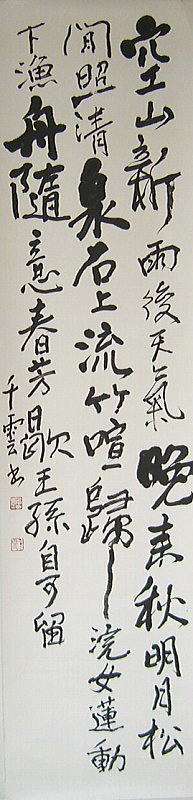 空山新雨後天氣晚来秋明月松
間照清泉石上流竹喧歸浣女蓮動
下漁舟隨意春芳歇王孫自可留
千雲书